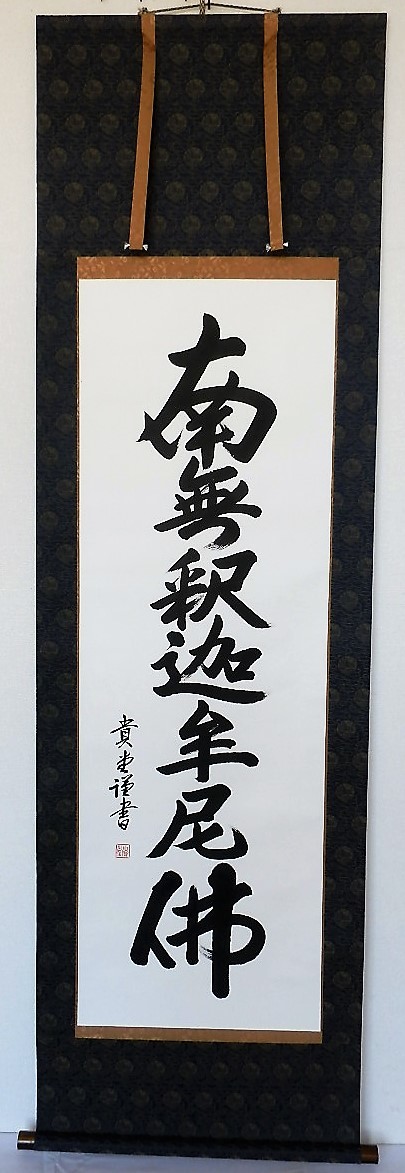 南無釈迦牟尼佛
貴堂謹書